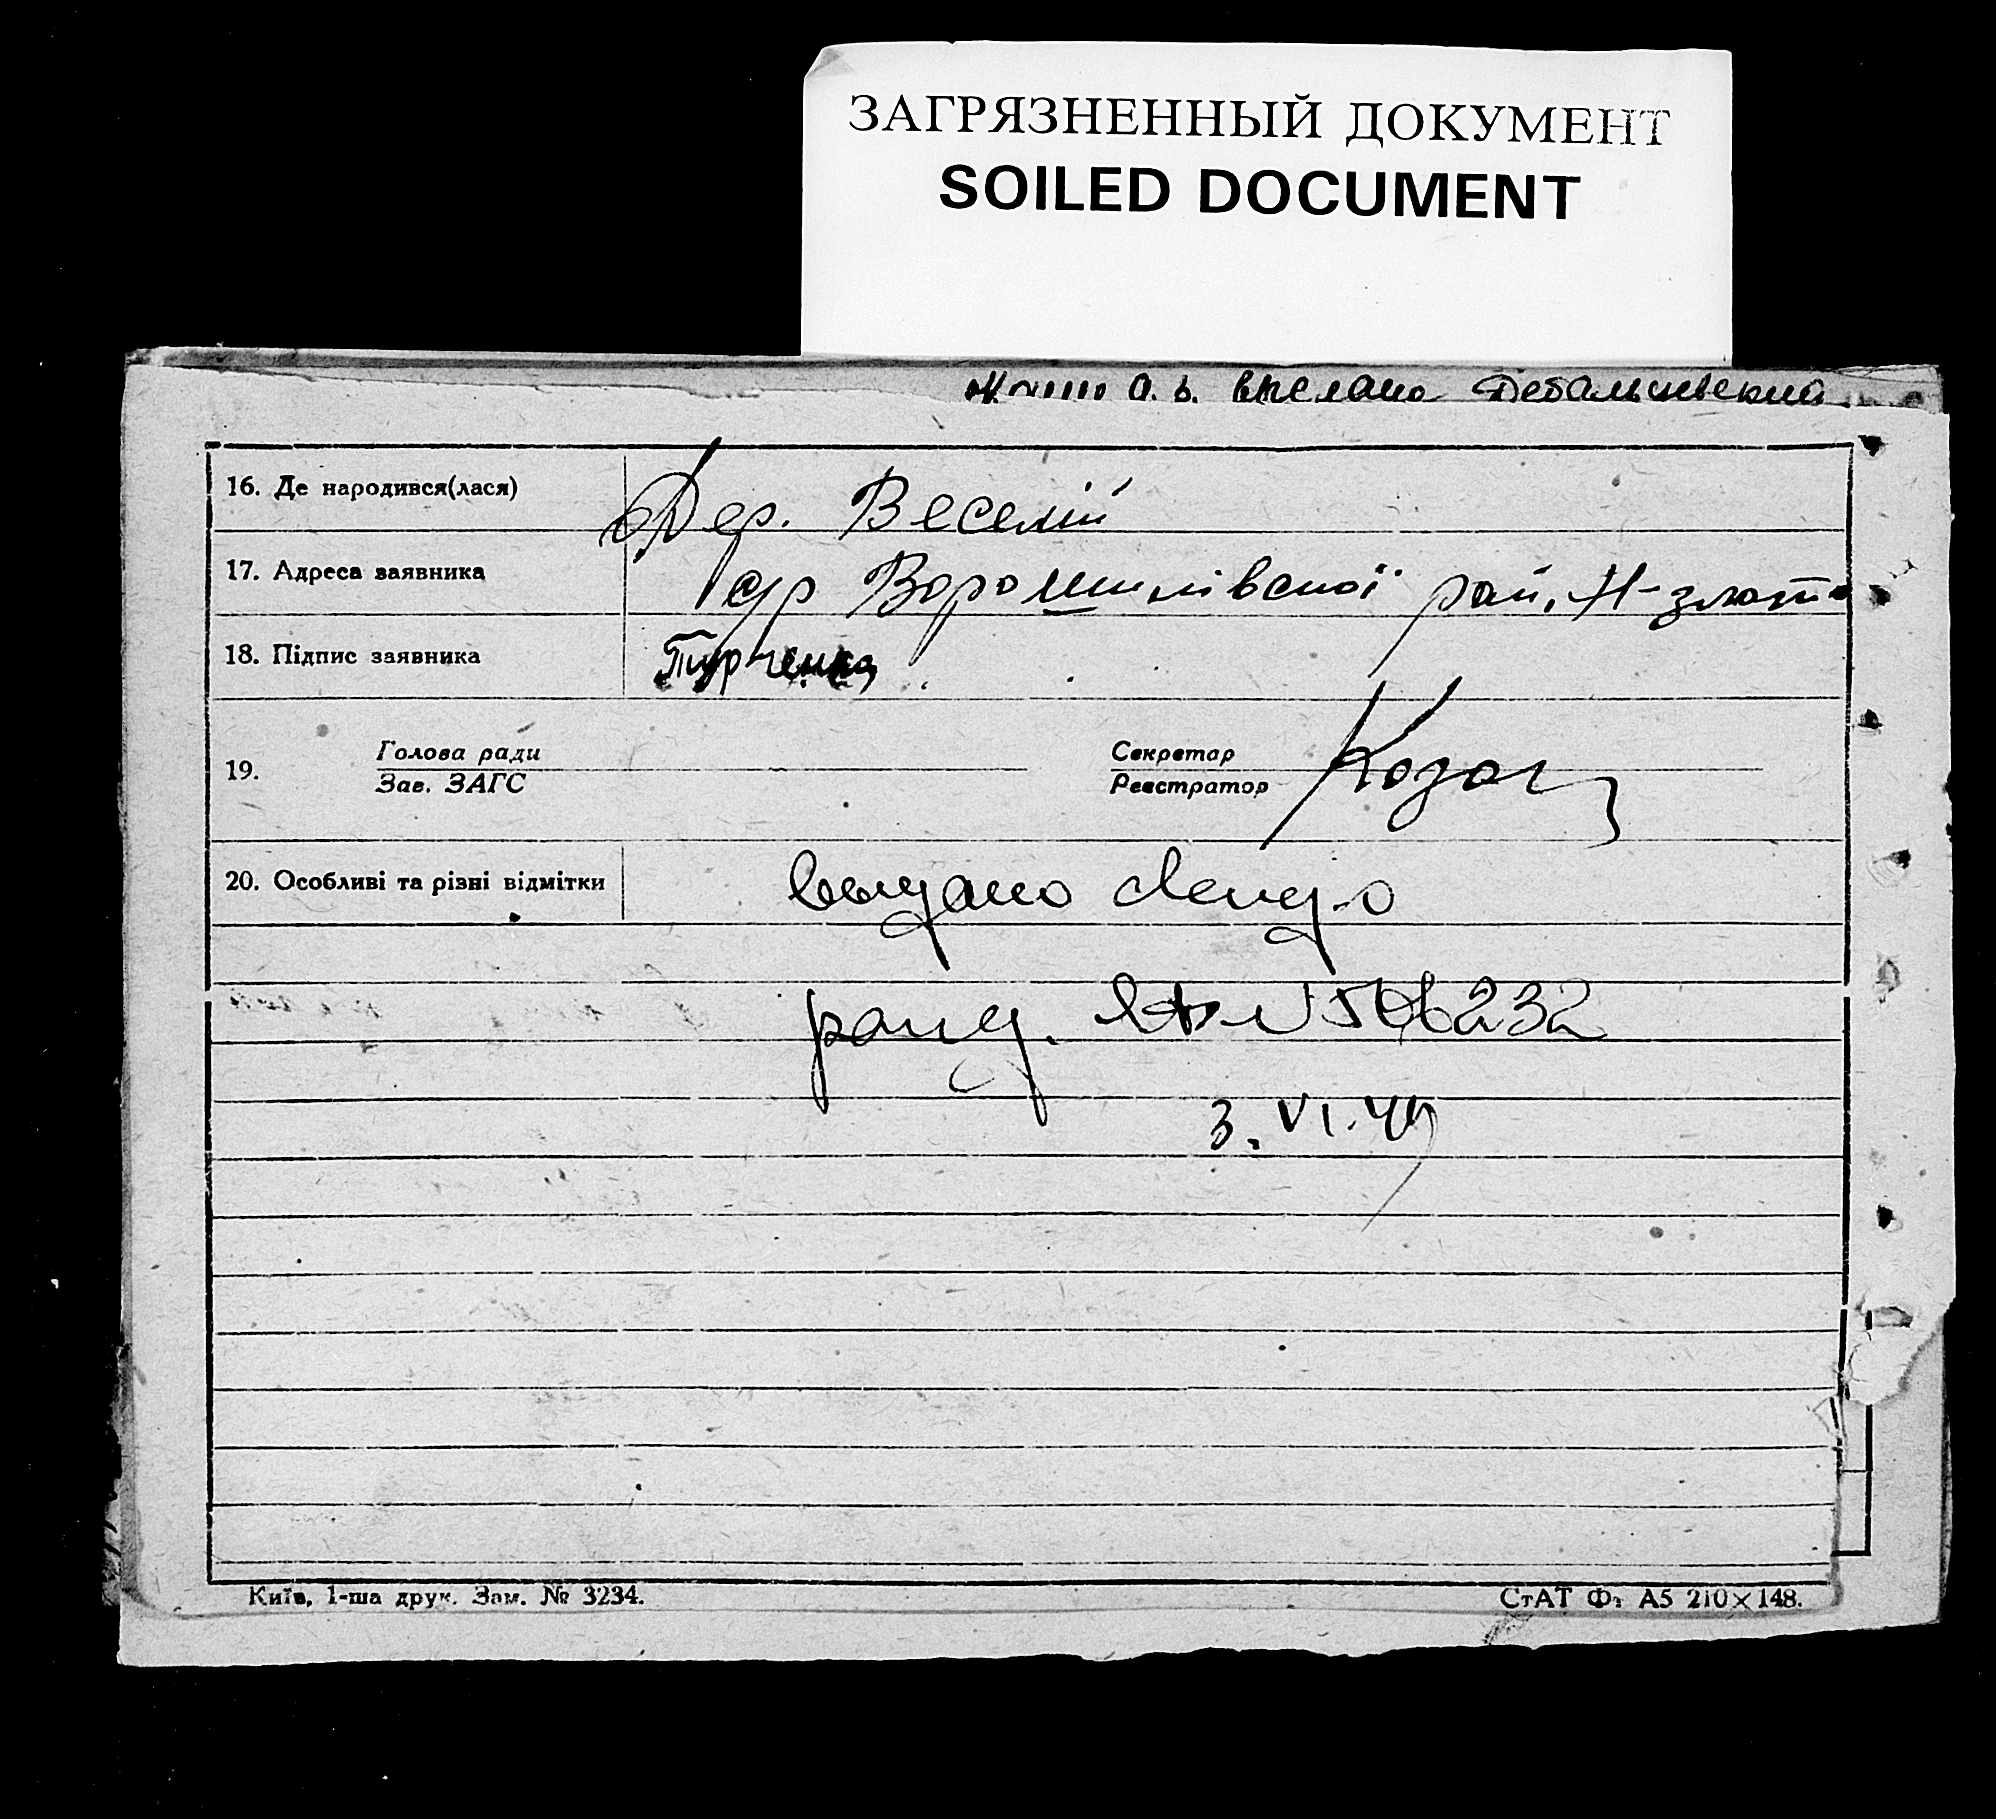 ЗАГРЯЗНЕННЫЙ ДОКУМЕНТ
SOILED DOCUMENT
выслано Дебальцевский
16. Де народився(лася) Дер. Веселій
17. Адреса заявника с/р Ворошилівської рай.
18. Підпис заявника Турченко
19. Голова ради
Зав. ЗАГС
Секретар
Реєстратор
20. Особливі та різні відмітки выдано
232
3.VI.49
Київ, 1-ша друк. Зам. № 3234.
СтАТ Ф2 А5 210×148.